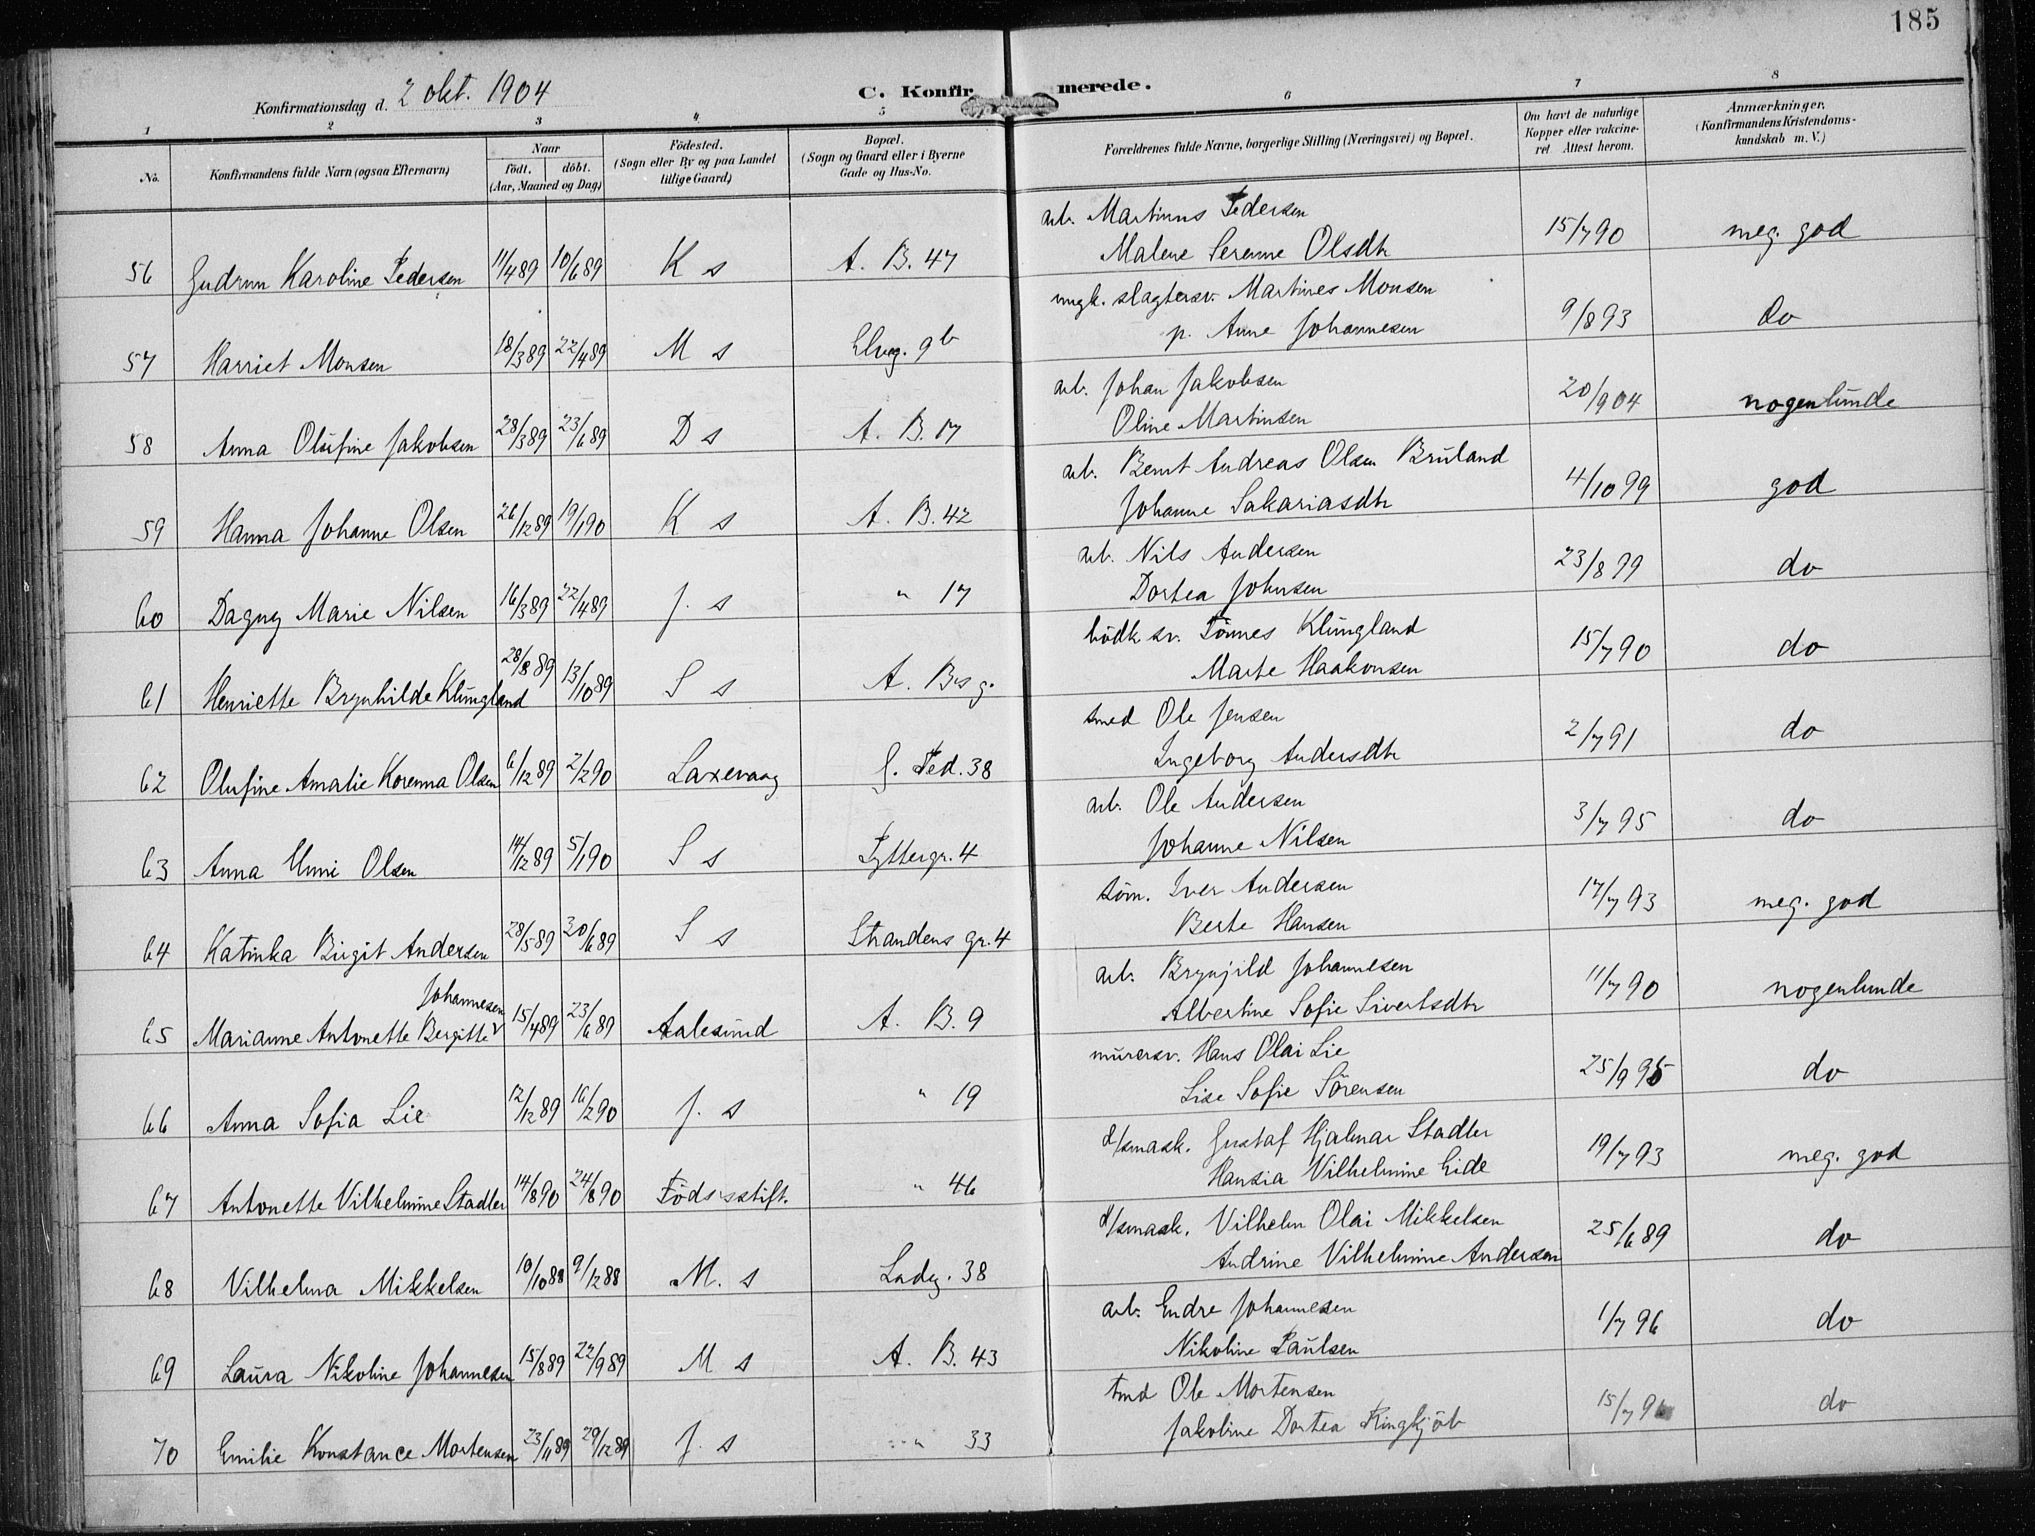 185
Konfirmationsdag d. 2 okt. 1904
C. Konfirmerede.
1 2 3 4 5 6 7 8
No.
Konfirmandens fulde Navn (ogsaa Efternavn)
Naar
födt. döbt.
(Aar, Maaned og Dag)
Födested.
(Sogn eller By og paa Landet
tillige Gaard)
Bopæl.
(Sogn og Gaard eller i Byerne
Gade og Hus-No.
Forældrenes fulde Navne, borgerlige Stilling (Næringsvei) og Bopæl.
Om havt de naturlige
Kopper eller vakcine-
ret. Attest herom.
Anmærkninger.
(Konfirmandens Kristendoms-
kundskab m. V.)
arb. Martinus Pedersen
56 Gudrun Karoline Pedersen 11/4 89 10/6 89 K s A. B. 47 Malene Serenne Olsdtr 15/7 90 meg. god
ungk. slagtersv. Martines Monsen
57 Harriet Monsen 18/3 89 22/4 89 M s Elveg. 9b p. Anne Johannesen 9/8 93 do
arb. Johan Jakobsen
58 Anna Olufine Jakobsen 28/3 89 23/6 89 D s A. B. 17 Oline Martinsen 20/9 04 nogenlunde
arb. Bernt Andreas Olsen Bruland
59 Hanna Johanne Olsen 26/12 89 19/1 90 K s A. B. 42 Johanne Sakariasdtr 4/10 99 god
arb. Nils Andersen
60 Dagny Marie Nilsen 16/3 89 22/4 89 J. s " 17 Dortea Johnsen 23/8 99 do
bödk sv. Tönnes Klungland
61 Henriette Brynhilde Klungland 28/8 89 13/10 89 S s A. Bs g. Marte Haakonsen 15/7 90 do
smed Ole Jensen
62 Olufine Amalie Korenna Olsen 6/12 89 2/2 90 Laxevaag J. Ped. 38 Ingeborg Andersdtr 2/7 91 do
arb. Ole Andersen
63 Anna Unni Olsen 14/12 89 5/1 90 S s Pyttergr. 4 Johanne Nilsen 3/7 95 do
söm. Iver Andersen
64 Katinka Birgit Andersen 28/5 89 30/6 89 S s Strandens gr. 4 Berte Hansen 17/7 93 meg. god
Johannesen
arb. Brynjild Johannesen
65 Marianne Antonette Bergitte 15/4 89 23/6 89 Aalesund A. B. 9 Albertine Sofie Sivertsdtr 11/7 90 nogenlunde
murersv. Hans Olai Lie
66 Anna Sofia Lie 12/12 89 16/2 90 J. s " 19 Lise Sofie Sörensen 25/9 95 do
d/smask. Gustaf Hjalmar Stadler
67 Antonette Vilhelmine Stadler 14/8 90 24/8 90 Födsesstift. " 46 Hansia Vilhelmine Eide 19/7 93 meg. god
d/smask. Vilhelm Olai Mikkelsen
68 Vilhelma Mikkelsen 10/10 88 9/12 88 M. s Ladeg. 38 Andrine Vilhelmine Andersen 25/6 89 do
arb. Endre Johannesen
69 Laura Nikoline Johannesen 15/8 89 22/9 89 M s A. B. 43 Nikoline Paulsen 1/7 96 do
tmd Ole Mortensen
70 Emilie Konstance Mortensen 23/11 89 29/12 89 J. s " 33 Jakobine Dortea Ringkjöb 15/7 do